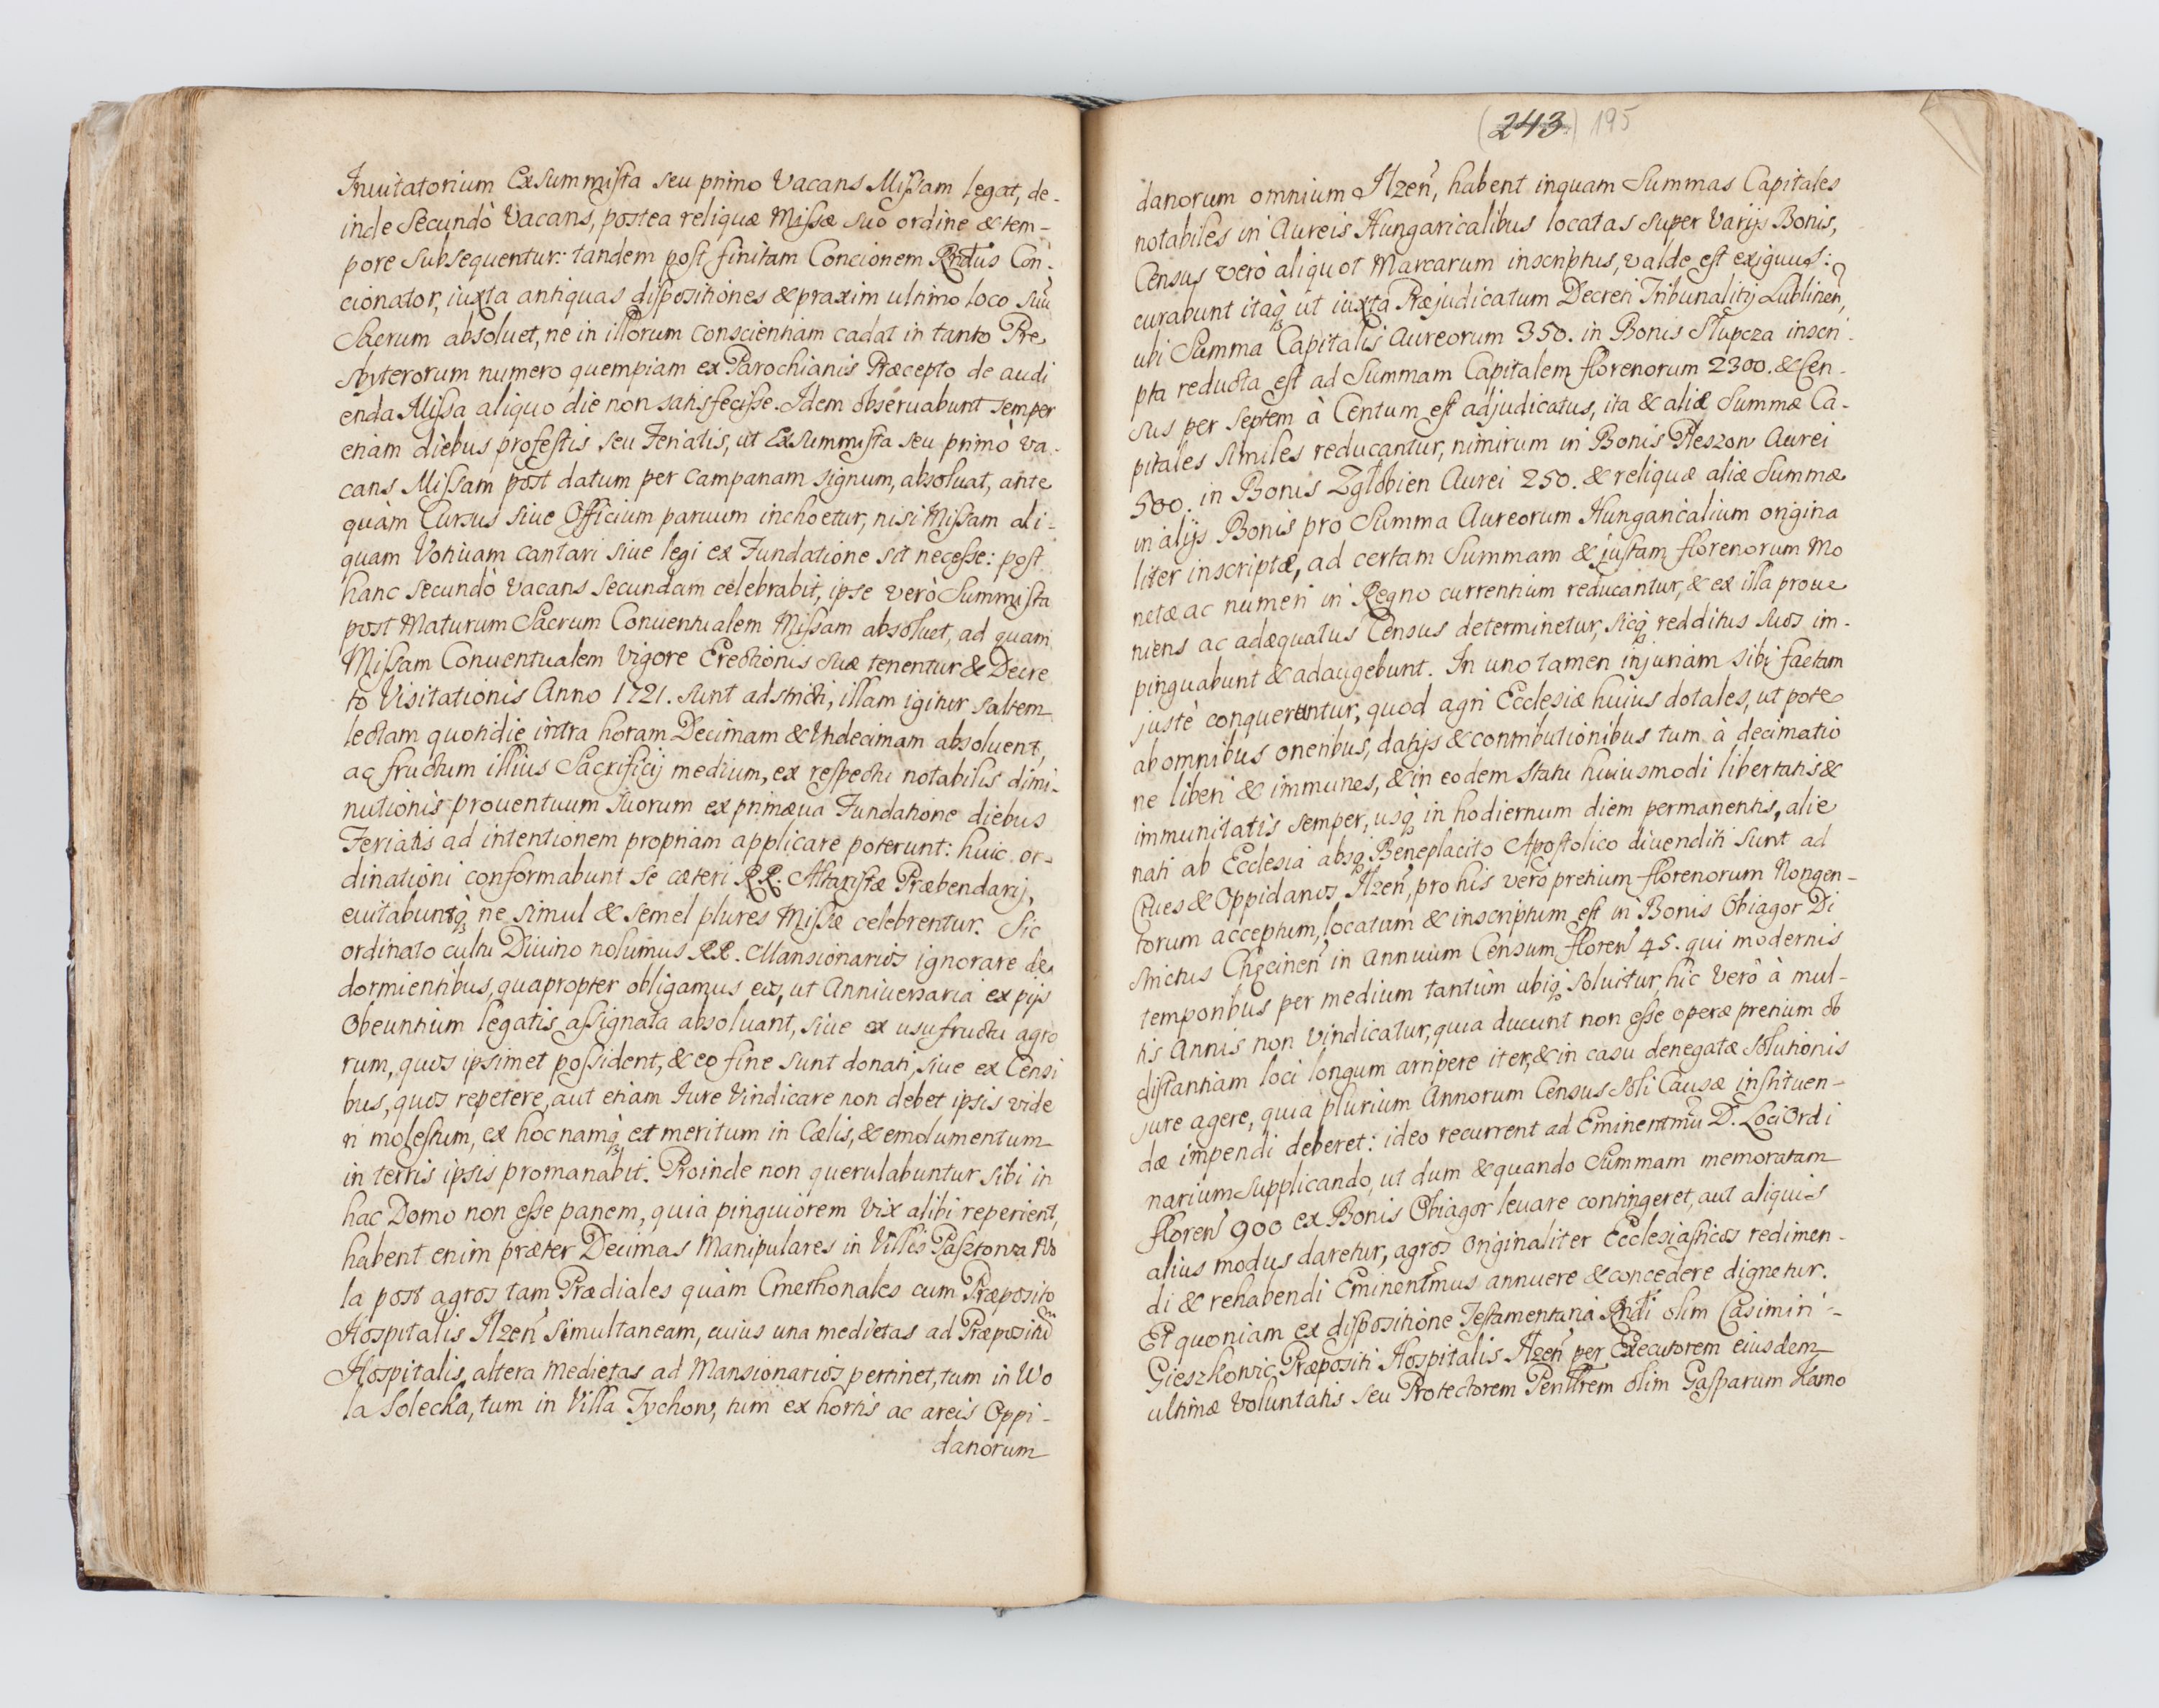 Inuitatorium Exsummista seu primo Vacans Missam legat, de-
inde Secundò Vacans, postea reliquæ Missæ suo ordine & tem-
pore Subsequentur: tandem post finitam Concionem Rndus Con-
cionator, iuxta antiquas dispositiones & praxim ultimo loco suū
Sacrum absoluet, ne in illorum conscientiam cadat in tanto Pre
sbyterorum numero quempiam ex Parochianis Præcepto de audi
enda Missa aliquo die non satisfecisse. Idem obseruabunt semper
etiam diebus profestis seu Ferialis, ut Exsummista seu primò va-
cans Missam post datum per campanam signum, absoluat, ante
quàm Cursus siue Officium paruum inchoetur, nisi Missam ali-
quam Votiuam cantari siue legi ex Fundatione sit necesse: post
hanc secundò vacans secundam celebrabit, ipse verò Summista
post Maturum Sacrum Conuentualem Missam absoluet, ad quam
Missam Conuentualem vigore Erectionis suæ tenentur & Decre
to Visitationis Anno 1721. sunt adstricti, illam igitur saltem
lectam quotidie intra horam Decimam & Undecimam absoluent,
ac fructum illius Sacrificij medium, ex respectu notabilis dimi-
nutionis prouentuum suorum ex primæua Fundatione diebus
Feriatis ad intentionem propriam applicare poterunt: huic or-
dinationi conformabunt se cæteri RR. Altaristæ Præbendarij,
euitabuntq̃ ne simul & semel plures Missæ celebrentur. Sic
ordinato cultu Diuino nolumus RR. Mansionarios ignorare de
dormientibus, quapropter obligamus eos, ut Anniuersaria ex pijs
Obeuntium legatis assignata absoluant, siue ex usufructu agro
rum, quos ipsimet possident, & eo fine sunt donati, siue ex Censi
bus, quos repetere, aut etiam Iure Vindicare non debet ipsis vide
ri molestum, ex hoc namq̃ et meritum in Cælis, & emolumentum
in terris ipsis promanabit. Proinde non querulabuntur sibi in
hac Domo non esse panem, quia pinguiorem vix alibi reperient,
habent enim præter Decimas Manipulares in Villis Pasztowa Wo
la post agros tam Prædiales quàm Cmethonales cum Præposito
Hospitalis Ilzeñ Simultaneam, cuius una medietas ad Præpositū
Hospitalis, altera medietas ad Mansionarios pertinet, tum in Wo
la Solecka, tum in Villa Tychow, tum ex hortis ac areis Oppi-
danorum
(243) 195
danorum omnium Ilzeñ, habent inquam Summas Capitales
notabiles in Aureis Hungaricalibus locatas super Varijs Bonis,
Census verò aliquot Marcarum inscriptus, valde est exiguus:
curabunt itaq̃ ut iuxta Præjudicatum Decreti Tribunalitij Lublineñ,
ubi Summa Capitalis Aureorum 350. in Bonis Słupcza inscri-
pta reducta est ad Summam Capitalem florenorum 2300. & Cen-
sus per septem à Centum est adjudicatus, ita & aliæ Summæ Ca-
pitales similes reducantur, nimirum in Bonis Pleszow Aurei
500. in Bonis Zglobien Aurei 250. & reliquæ aliæ Summæ
in alijs Bonis pro Summa Aureorum Hungaricalium origina
liter inscriptæ, ad certam Summam & justam florenorum Mo
netæ ac numeri in Regno currentium reducantur, & ex illa proue
niens ac adæquatus Census determinetur, sicq̃ redditus suos im-
pinguabunt & adaugebunt. In uno tamen injuriam sibi factam
justè conqueruntur, quod agri Ecclesiæ huius dotales, ut pote
ab omnibus oneribus, datijs & contributionibus tum à decimatio
ne liberi & immunes, & in eodem statu huiusmodi libertatis &
immunitatis semper, usq̃ in hodiernum diem permanentis, alie
nati ab Ecclesia absq̃ Beneplacito Apostolico diuenditi sunt ad
Ciues & Oppidanos Ilzeñ, pro his verò pretium florenorum Nongen-
torum acceptum, locatum & inscriptum est in Bonis Obiagor Di
strictus Chęcineñ in Annuum Censum floreñ 45. qui modernis
temporibus per medium tantùm ubiq̃ soluitur, hic verò à mul-
tis Annis non vindicatur, quia ducunt non esse operæ pretium ob
distantiam loci longum arripere iter, & in casu denegatæ solutionis
jure agere, quia plurium Annorum Census soli Causæ instituen-
dæ impendi deberet: ideo recurrent ad Eminentmū D. Loci Ordi
narium supplicando, ut dum & quando Summam memoratam
floreñ 900 ex Bonis Obiagor leuare contingeret, aut aliquis
alius modus daretur, agros originaliter Ecclesiasticos redimen-
di & rehabendi Eminentmus annuere & concedere dignetur.
Et quoniam ex dispositione Testamentaria Rndi olim Casimiri
Gieszkowic Præpositi Hospitalis Ilzeñ per Executorem eiusdem
ultimæ voluntatis seu Protectorem Penłłrem olim Gasparum Kamo